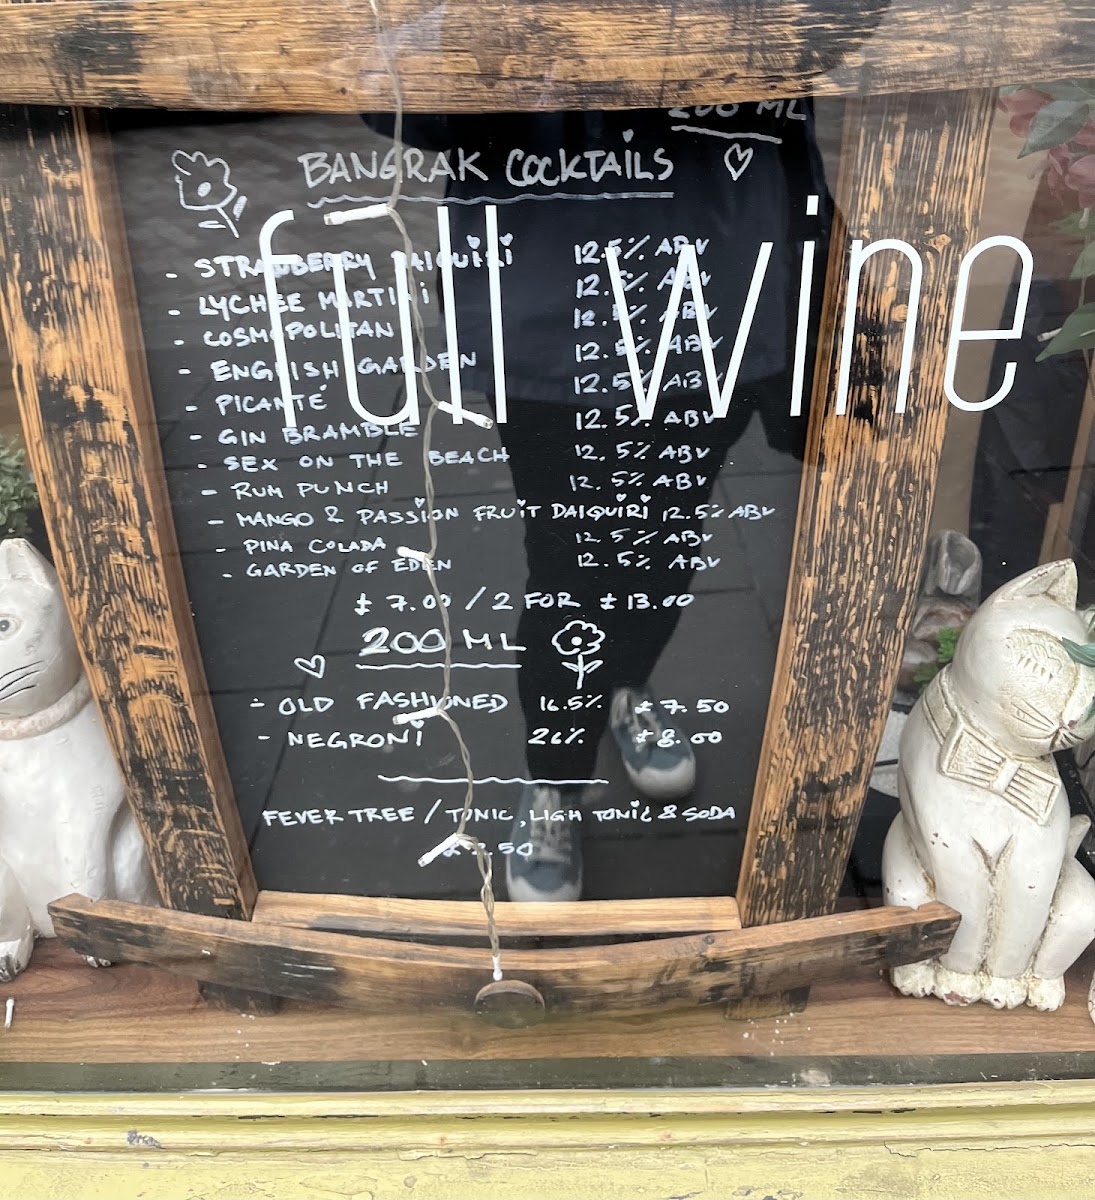 200 ML
BANGRAK COCKTAILS
full wine
- STRAWBERRY DAIQUIRI 12.5% ABV
- LYCHEE MARTINI 12.5% ABV
- COSMOPOLITAN 12.5% ABV
- ENGLISH GARDEN 12.5% ABV
- PICANTÉ 12.5% ABV
- GIN BRAMBLE 12.5% ABV
- SEX ON THE BEACH 12.5% ABV
- RUM PUNCH 12.5% ABV
- MANGO & PASSION FRUIT DAIQUIRI 12.5% ABV
- PINA COLADA 12.5% ABV
- GARDEN OF EDEN 12.5% ABV
£ 7.00 / 2 FOR £ 13.00
200 ML
- OLD FASHIONED 16.5% £ 7.50
- NEGRONI 26% £ 8.00
FEVER TREE / TONIC, LIGH TONIC & SODA